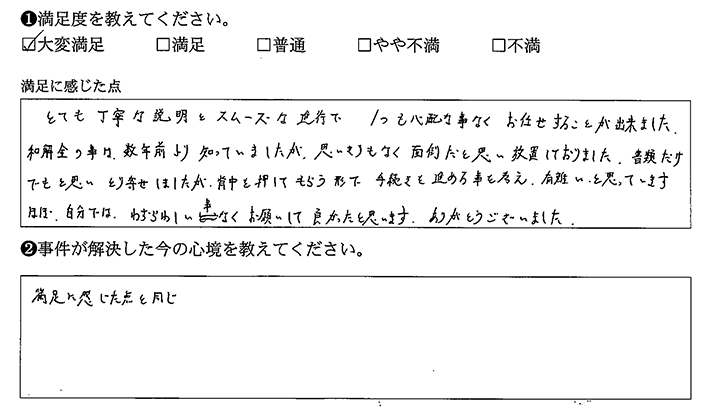 ❶満足度を教えてください。
☑大変満足 □満足 □普通 □やや不満 □不満
満足に感じた点
とても丁寧な説明とスムーズな進行で 1つも心配な事なくお任せすることが出来ました。
和解金の事は、数年前より知っていましたが、思いきりもなく面倒だと思い放置しておりました。書類だけ
でもと思いとり寄せはしたが、背中を押してもらう形で手続きを進める事を考え、有難いと思っています
ほぼ、自分では、わずらわしい事なくお願いして良かったと思います。ありがとうございました。
❷事件が解決した今の心境を教えてください。
満足に感じた点と同じ